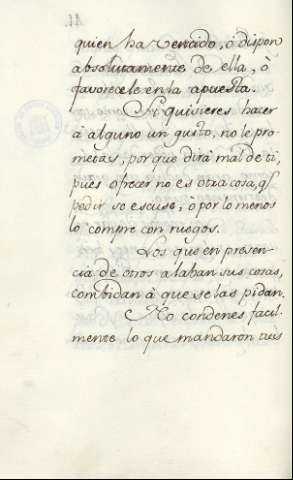 quien ha vencido, ó dispon
absolutamente de ella, ò
favorecele en la apuesta.
Si quisieres hacer
à alguno un gusto, no le pro-
metas, porque dirà mal de ti,
pues ofrecer no es otra cosa, q̃
pedir se escuse, ò por lo menos
lo compre con ruegos.
Los que en presen-
cia de otros alaban sus cosas,
combidan à que se las pidan.
No condenes facil-
mente lo que mandaron tus